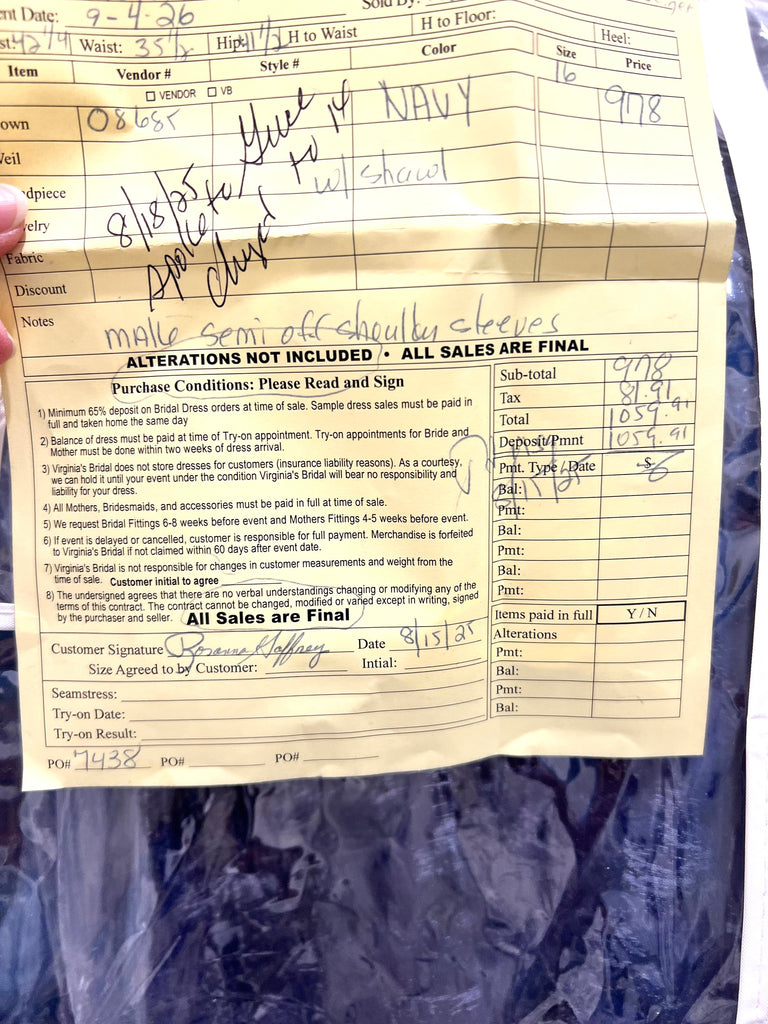 nt Date: 9-4-26 Sold By:
st: 42 1/4 Waist: 35 1/2 Hip: 41 1/2 H to Waist H to Floor: Heel:
Item Vendor # Style # Color Size Price
☐ VENDOR ☐ VB 16
own 08685 NAVY 978
Veil
dpiece w/ shawl
elry
Fabric
Discount
8/18/25
Spoke to
to 14
Notes make semi off shoulder sleeves
ALTERATIONS NOT INCLUDED • ALL SALES ARE FINAL
Purchase Conditions: Please Read and Sign
1) Minimum 65% deposit on Bridal Dress orders at time of sale. Sample dress sales must be paid in
full and taken home the same day
2) Balance of dress must be paid at time of Try-on appointment. Try-on appointments for Bride and
Mother must be done within two weeks of dress arrival.
3) Virginia's Bridal does not store dresses for customers (insurance liability reasons). As a courtesy,
we can hold it until your event under the condition Virginia's Bridal will bear no responsibility and
liability for your dress.
4) All Mothers, Bridesmaids, and accessories must be paid in full at time of sale.
5) We request Bridal Fittings 6-8 weeks before event and Mothers Fittings 4-5 weeks before event.
6) If event is delayed or cancelled, customer is responsible for full payment. Merchandise is forfeited
to Virginia's Bridal if not claimed within 60 days after event date.
7) Virginia's Bridal is not responsible for changes in customer measurements and weight from the
time of sale. Customer initial to agree
8) The undersigned agrees that there are no verbal understandings changing or modifying any of the
terms of this contract. The contract cannot be changed, modified or varied except in writing, signed
by the purchaser and seller. All Sales are Final
Customer Signature Rosanna Gaffney Date 8/15/25
Size Agreed to by Customer: Intial:
Seamstress:
Try-on Date:
Try-on Result:
PO# 7438 PO# PO#
Sub-total 978
Tax 81.91
Total 1059.91
Deposit/Pmnt 1059.91
Pmt. Type / Date $
Bal: 8/15/25
Pmt:
Bal:
Pmt:
Bal:
Pmt:
Items paid in full Y / N
Alterations
Pmt:
Bal:
Pmt:
Bal: